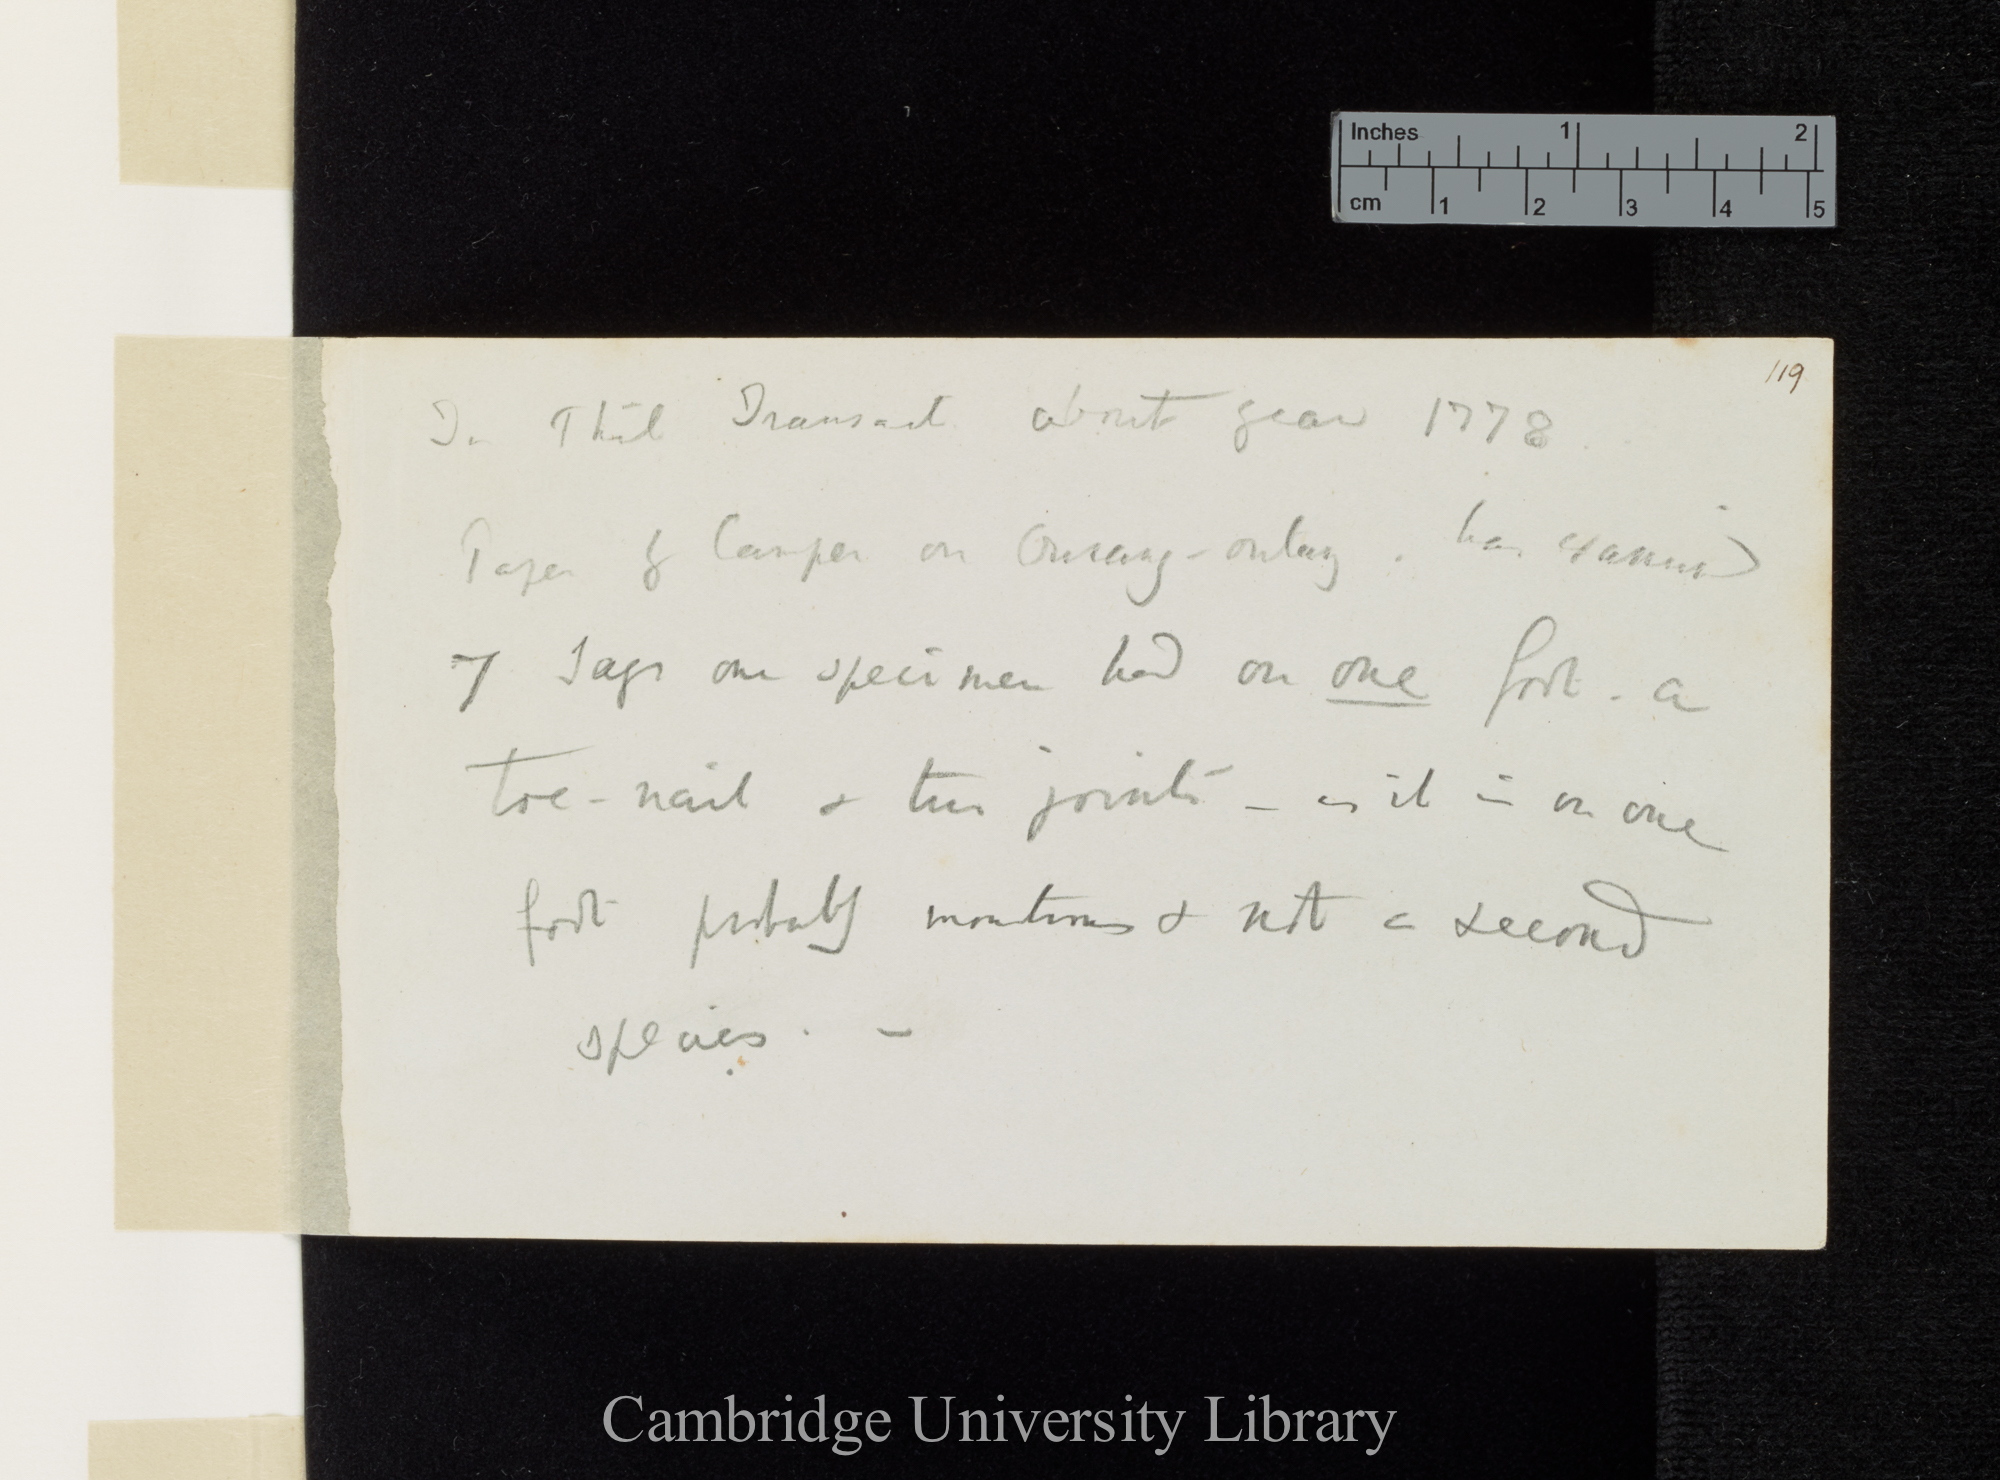 Inches 1 2
cm 1 2 3 4 5
119
In Phil Transact about year 1778
Paper of Camper on Ourang-outang. has examined
7 Says one specimen had on one foot. a
toe-nail & two joints — as it is on one
foot probably monstrous & not a second
species. —
Cambridge University Library